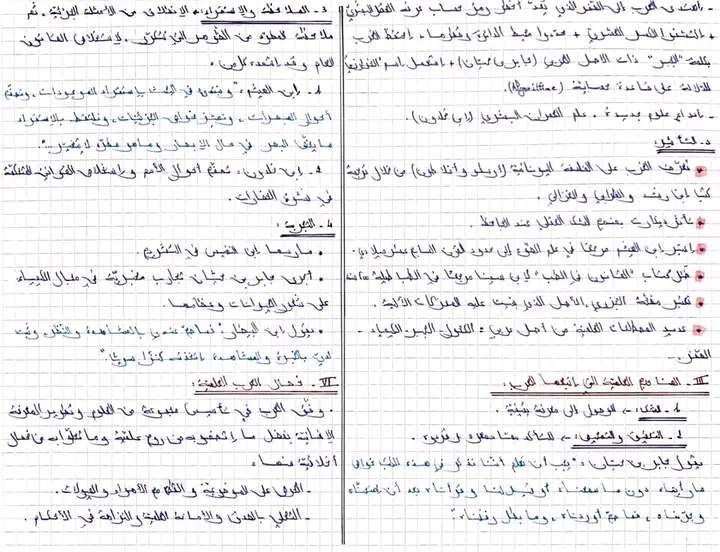 - اهتدى العرب إلى الصفر الذي يُعدّ أخطر رمز حساب عرفه الفكر البشري
+ اكتشفوا الكسر العشري + حددوا محيط الدائرة وقطرها. احتفظ الغرب
بكلمة "الجبر" ذات الأصل العربي (جابر بن حيان) + استعمل اسم "الخوارزمي"
للدلالة على قاعدة حسابية (Algorithme).
- إبداع علوم جديدة: علم العمران البشري (ابن خلدون).
د - التأثير:
تعرّف الغرب على الفلسفة اليونانية (أرسطو وأفلاطون) من خلال ترجمة
كتب ابن رشد والفارابي والغزالي.
تأثر ديكارت بمنهج الشك العقلي عند الجاحظ.
اعتبر ابن الهيثم مرجعا في علم الضوء إلى حدود القرن السابع عشر ميلادي.
ظل كتاب "القانون في الطب" لابن سينا مرجعا في الطب طيلة
تعتبر مضخة الجزري الأصل الذي بنيت عليه المحركات الآلية.
عديد المصطلحات العلمية من أصل عربي: الكحول، الجبر، الكيمياء -
الصفر...
III - المناهج العلمية التي اتبعها العرب:
1 - الشك: -> للوصول إلى معرفة يقينية.
2 - التحقيق والتمحيص: -> للتأكد مما سمعوه أو قرؤوه.
يقول جابر بن حيان: "يجب أن تعلم أننا نذكر في هذه الكتب خواص
ما رأيناه دون ما سمعناه أو قيل لنا وقرأناه بعد أن امتحناه
وجربناه، فما صح أوردناه، وما بطل رفضناه"
3 - الملاحظة والاستقراء: الانطلاق من الأمثلة الجزئية، ثم
ملاحظة للظواهر لاستخلاص القانون
العام وقد اعتمده كل من:
1 - ابن الهيثم: "ونبتدئ في البحث باستقراء الموجودات، وتصفح
أحوال المبصرات، وتمييز خواص الجزئيات، ونلتقط بالاستقراء
ما يخص البصر في حال الإبصار وما هو مطرد لا يتغير..."
2 - ابن خلدون: تصفح أحوال الأمم واستخلاص القوانين المتحكمة
في نشوء الحضارات.
4 - التجربة:
مارسها ابن النفيس في التشريح.
أجرى جابر بن حيان تجارب مخبرية في مجال الكيمياء
على
يقول ابن البيطار: "فما صح عندي بالمشاهدة والنظر، وثبت
لديّ بالخبرة والمشاهدة اتخذته كنزا سريا"
VI - خصال العرب العلمية:
وفّق العرب في تأسيس مجموعة من العلوم وتطوير المعرفة
الإنسانية بفضل ما اتصفوا به من روح علمية وما تحلّوا به من خصال
أخلاقية منها:
- الحرص على الموضوعية والميولات.
- التحلي بالصدق والأمانة العلمية والنزاهة في الأحكام.